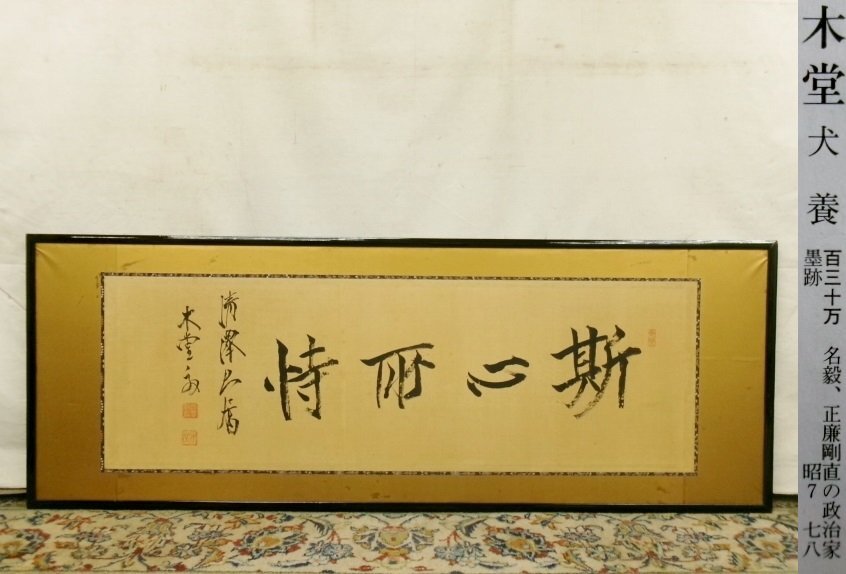 斯心所恃
木堂毅
木堂
犬養
百三十万 名毅、正廉剛直の政治家
墨跡 昭7 七八